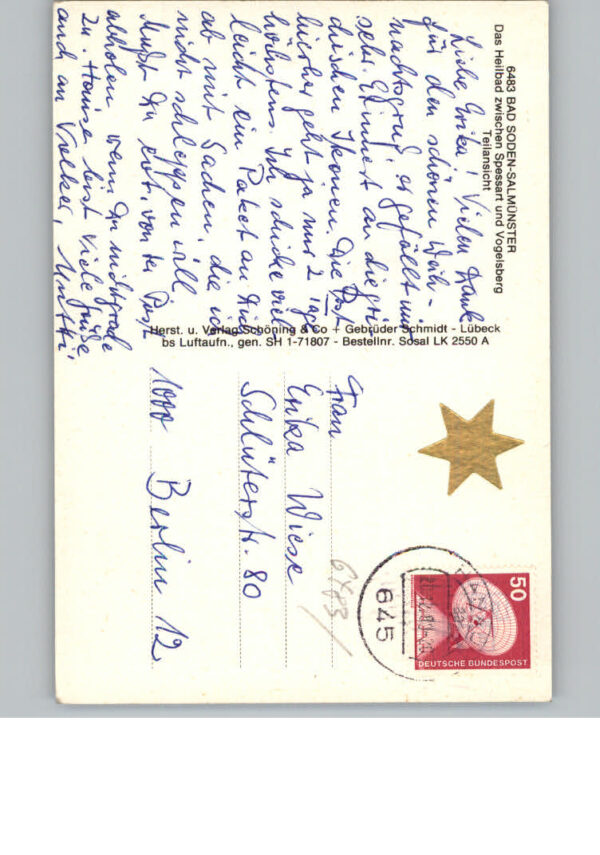 6483 BAD SODEN-SALMÜNSTER
Das Heilbad zwischen Spessart und Vogelsberg
Teilansicht
Liebe Erika! Vielen Dank
für den schönen Weih-
nachtsgruß, er gefällt mir
sehr. Erinnert an die
dischen Ikonen. Die Post
hierher geht ja nur 2 Tage
höchstens. Ich schicke viel
leicht ein Paket an Dich
ab mit Sachen, die ich
nicht schleppen will
Mußt Du evt. von der Post
abholen wenn Du nicht grade
zu Hause bist. Viele Grüße
auch an Volker, Mutti
Herst. u. Verlag Schöning & Co + Gebrüder Schmidt - Lübeck
bs Luftaufn., gen. SH 1-71807 - Bestellnr. Sosal LK 2550 A
Frau
Erika Wiese
Schlüterstr. 80
1000 Berlin 12
6483
645
50
DEUTSCHE BUNDESPOST